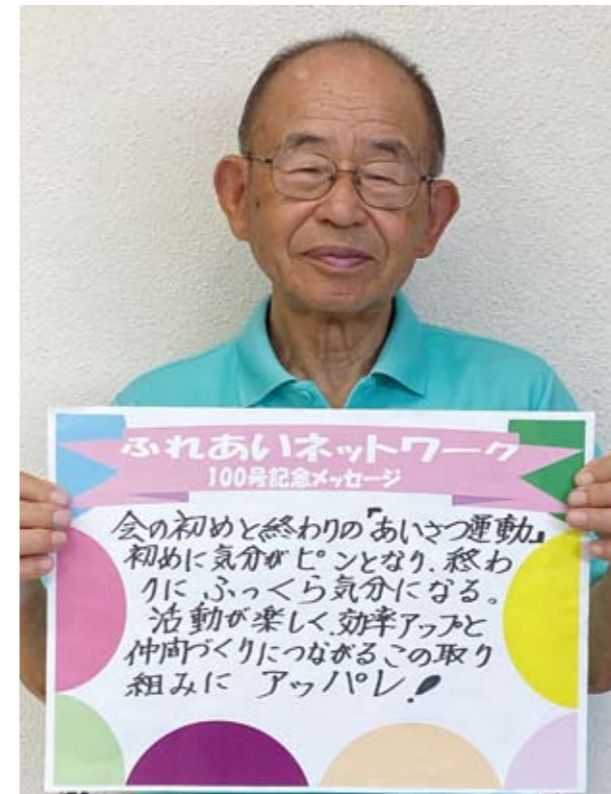 ふれあいネットワーク
100号記念メッセージ
会の初めと終わりの『あいさつ運動』
初めに気分がピンとなり、終わ
りに ふっくら気分になる。
活動が楽しく、効率アップと
仲間づくりにつながるこの取り
組みに アッパレ!